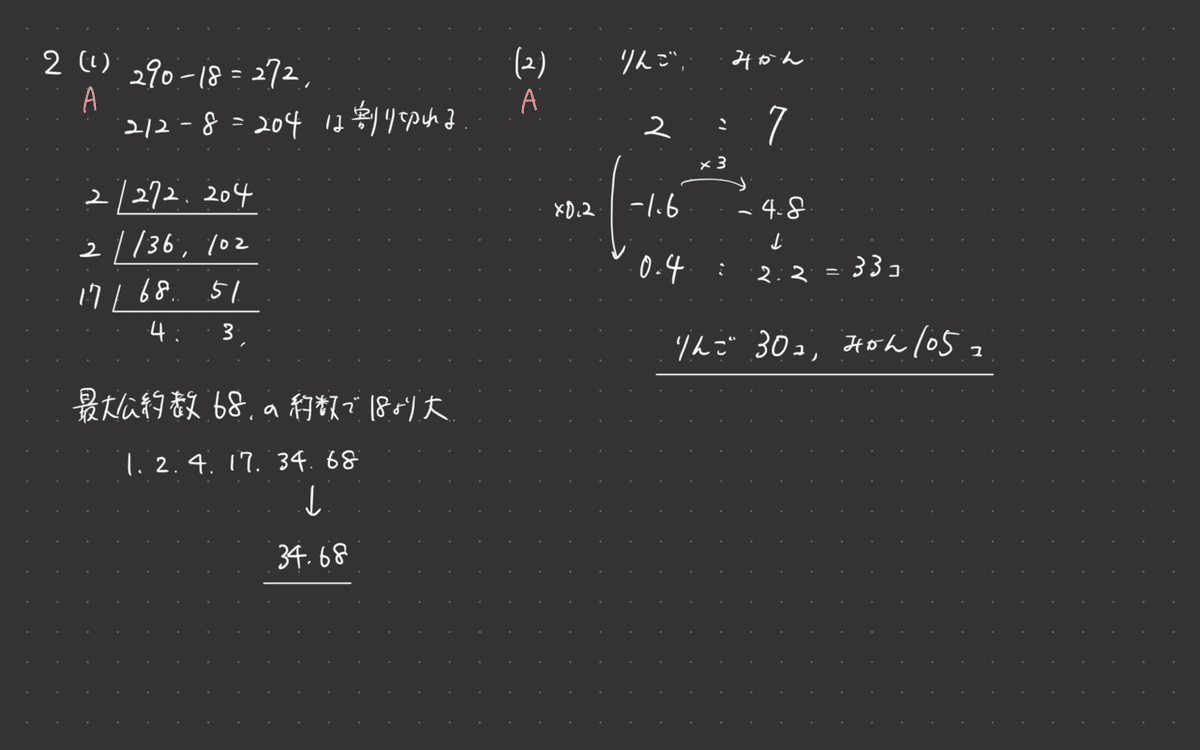 2 (1) 290-18=272,
A
212-8=204 は割り切れる.
2 272. 204
2 136, 102
17 68. 51
4. 3,
最大公約数 68, の約数で18より大
1. 2. 4. 17. 34. 68
↓
34. 68
(2) りんご, みかん
A
2 : 7
×3
×0.2 -1.6 -4.8
↓
0.4 : 2.2 = 33コ
りんご 30コ, みかん 105コ